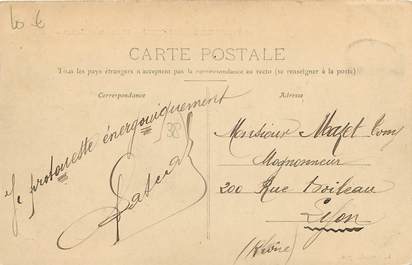 10 €
CARTE POSTALE
Tous les pays étrangers n'acceptent pas la correspondance au recto (se renseigner à la poste)
Correspondance
Adresse
Je protoueste énergouiquement
Pascal
Monsieur Mafet Tony
Magnonneur
200 Rue Boileau
Lyon
(Rhône)